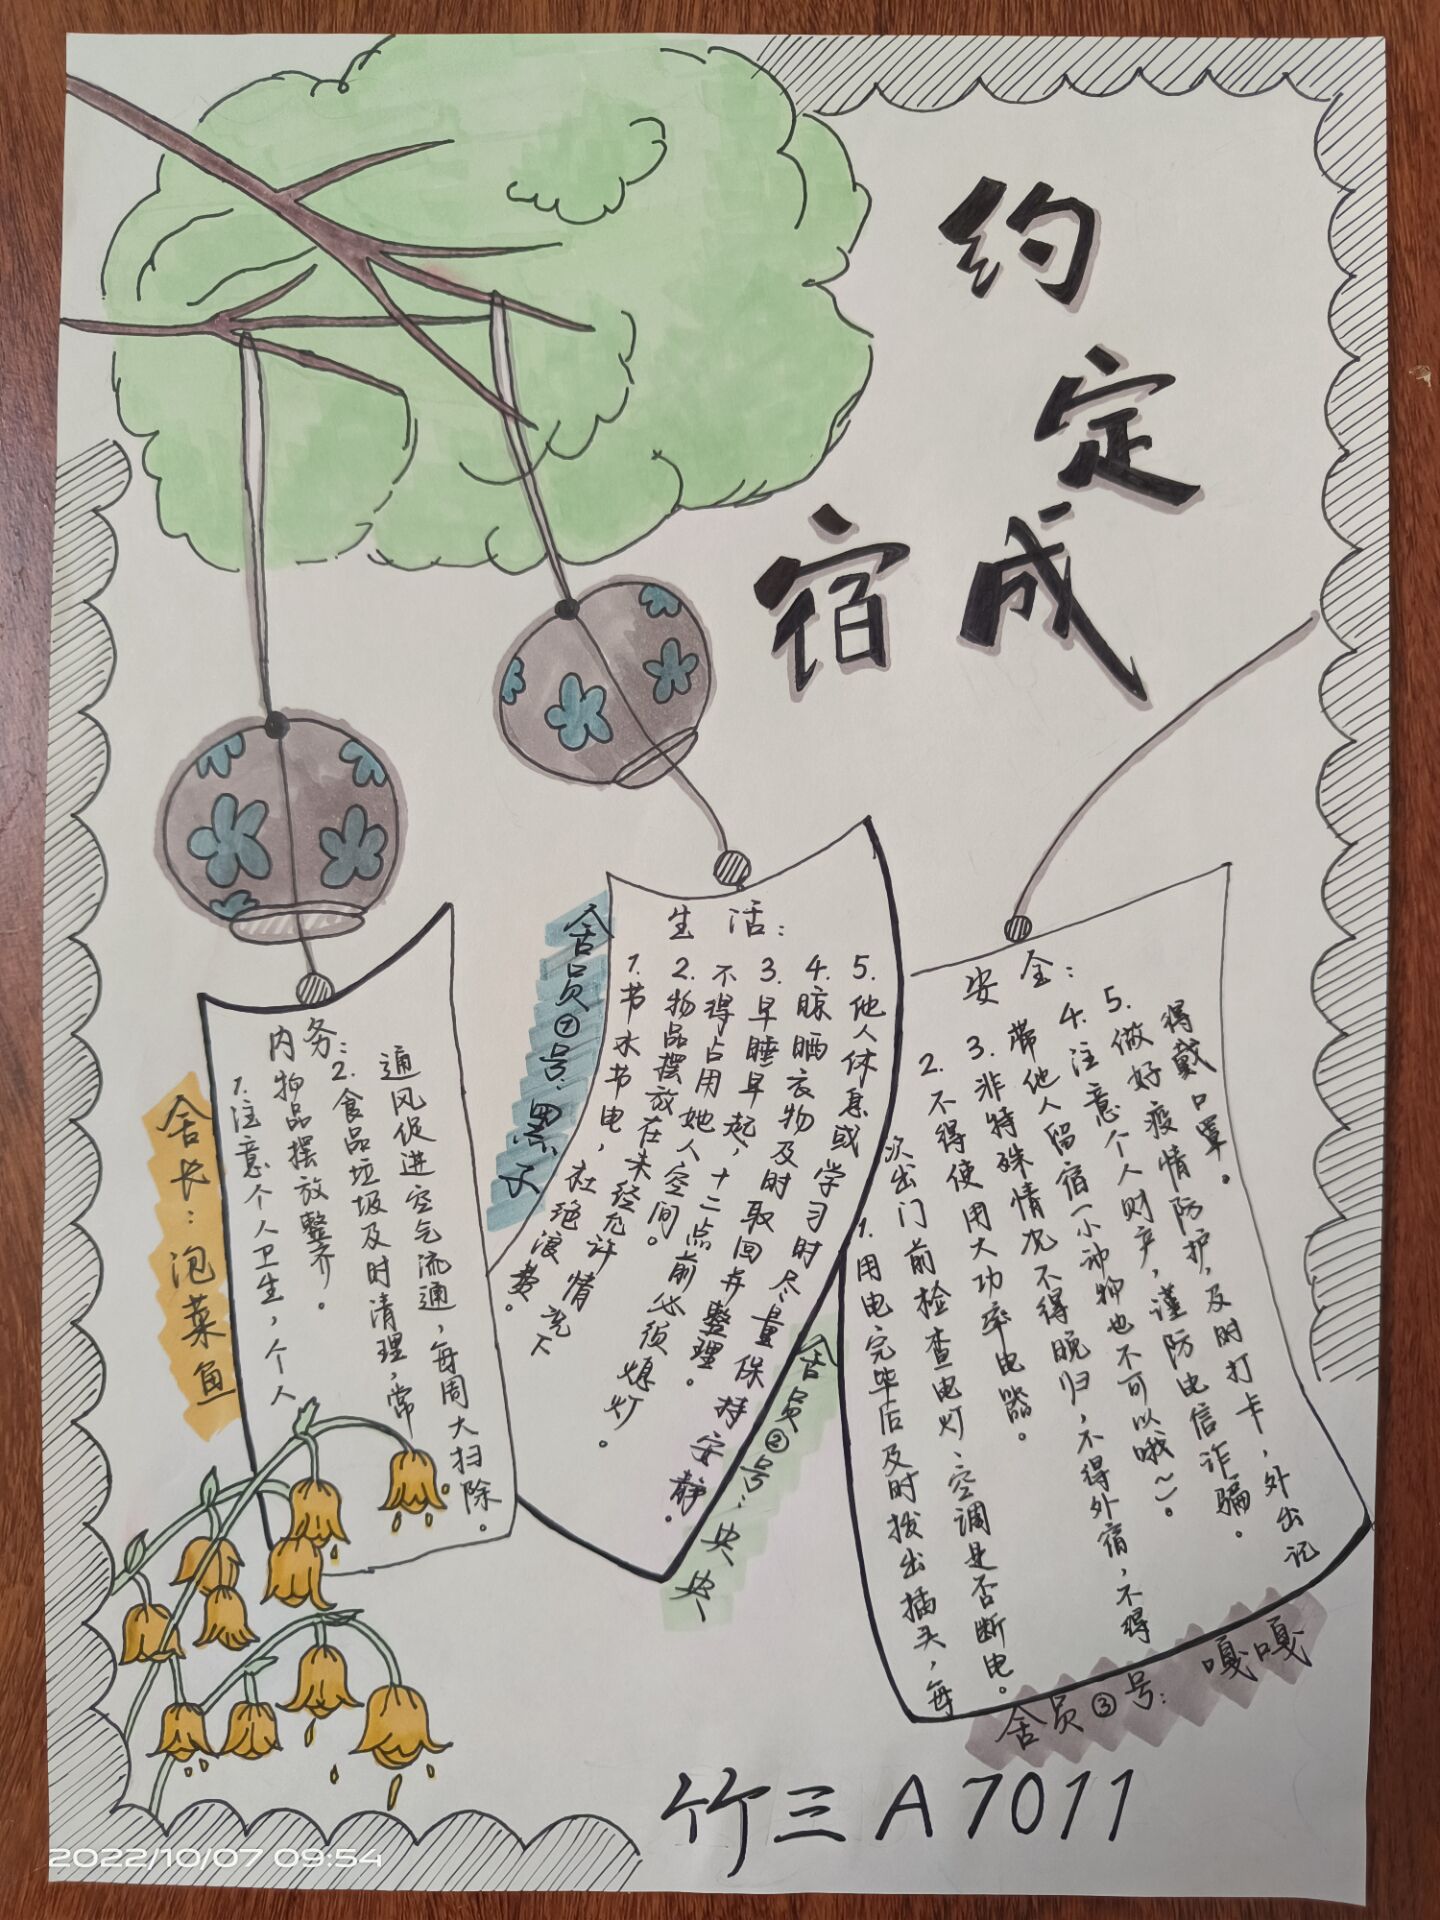 约定成宿
内务:
1.注意个人卫生,个人
物品摆放整齐。
2.食品垃圾及时清理,常
通风促进空气流通,每周大扫除。
舍长:泡菜鱼
生活:
1.节水节电,杜绝浪费。
2.物品摆放在未经允许情况下
不得占用她人空间。
3.早睡早起,十二点前必须熄灯。
4.晾晒衣物及时取回并整理。
5.他人休息或学习时尽量保持安静。
舍员①号:墨天
舍员②号:央央
安全:
1.用电完毕后及时拔出插头,每
次出门前检查电灯、空调是否断电。
2.不得使用大功率电器。
3.非特殊情况不得晚归,不得外宿,不得
带他人留宿一小动物也不可以哦~。
4.注意个人财产,谨防电信诈骗。
5.做好疫情防护,及时打卡,外出记
得戴口罩。
舍员③号:嘎嘎
竹三A7011
2022/10/07 09:54